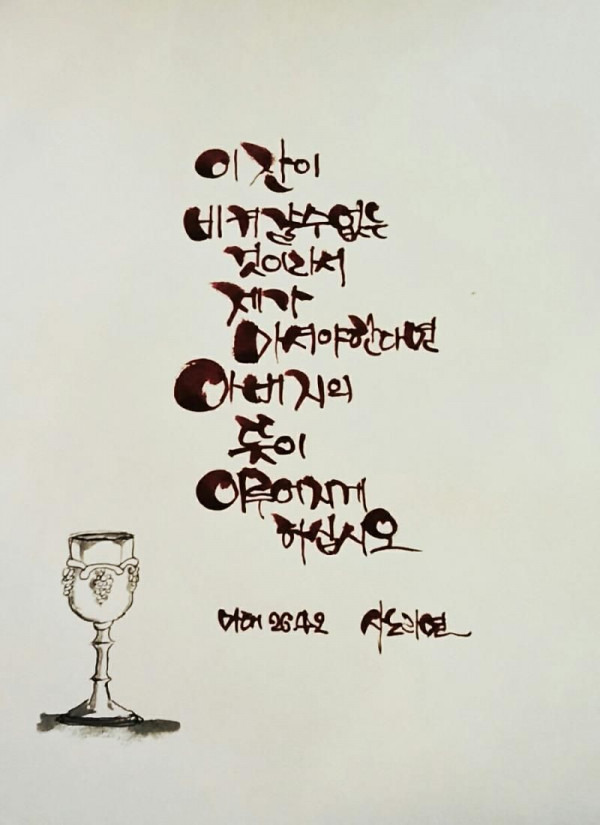 이 잔이
비켜갈수없는
것이라서
제가
마셔야한다면
아버지의
뜻이
이루어지게
하십시오
마태 26.42